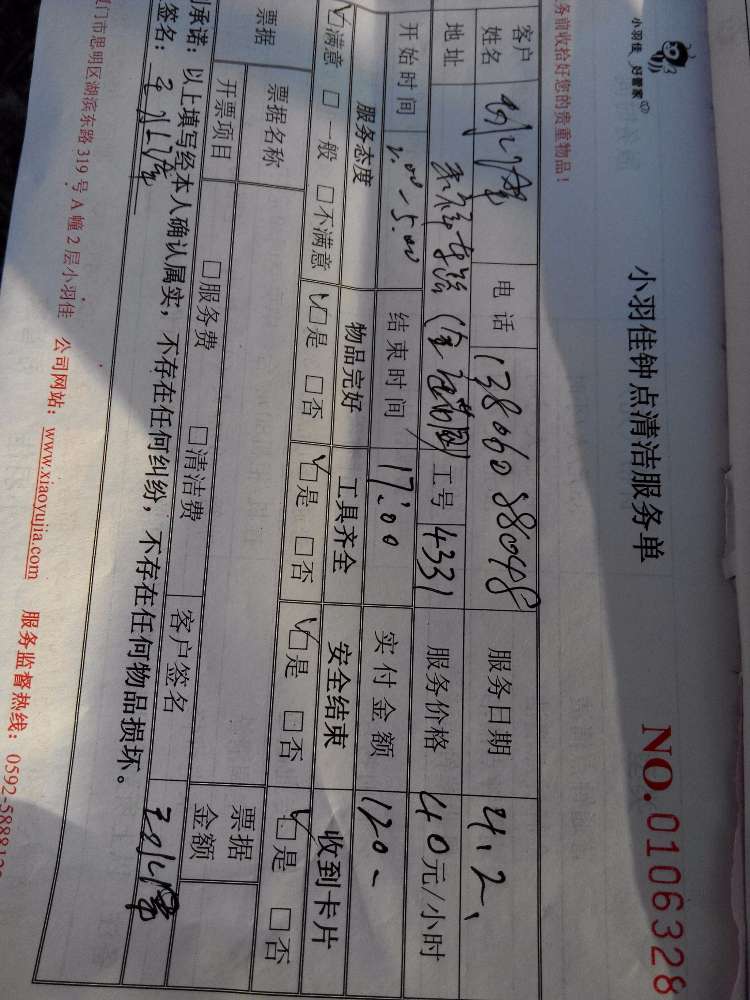 小羽佳 好管家
小羽佳钟点清洁服务单
NO.0106328
务前收拾好您的贵重物品！
客户姓名 电话 13806088048 服务日期 4.2、
地址 工号 4331 服务价格 40元/小时
开始时间 2.00-5.00 结束时间 17:00 实付金额 120-
服务态度 物品完好 工具齐全 安全结束 收到卡片
☑满意 □一般 □不满意 ☑是 □否 ☑是 □否 ☑是 □否 ☑是 □否
票据 票据名称 票据金额
开票项目 □服务费 □清洁费 客户签名
承诺：以上填写经本人确认属实，不存在任何纠纷，不存在任何物品损坏。
签名：
厦门市思明区湖滨东路319号A幢2层小羽佳 公司网站：www.xiaoyujia.com 服务监督热线：0592-588812